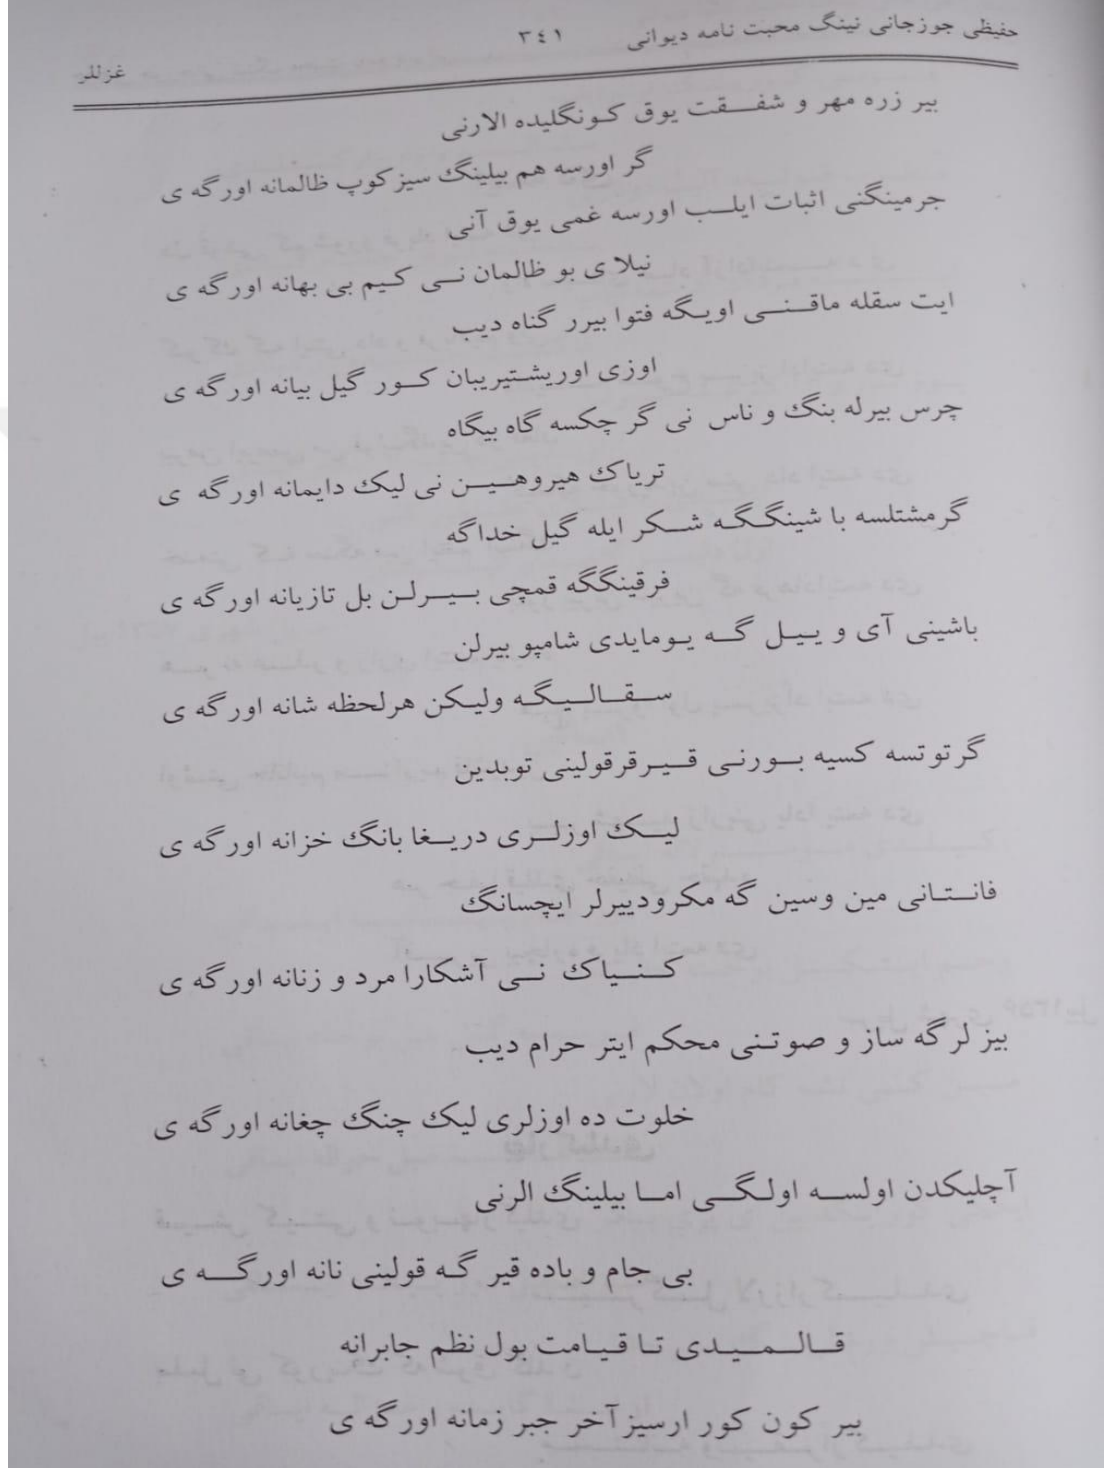 حفیظی جوزجانی نینگ محبت نامه دیوانی ۳۴۱ غزللر
بیر زره مهر و شفقت یوق کونگلیده الارنی
گر اورسه هم بیلینگ سیز کوپ ظالمانه اورگه ی
جرمینگنی اثبات ایلب اورسه غمی یوق آنی
نیلا ی بو ظالمان نی کیم بی بهانه اورگه ی
ایت سقله ماقنی اویگه فتوا بیرر گناه دیب
اوزی اوریشتیریبان کور گیل بیانه اورگه ی
چرس بیرله بنگ و ناس نی گر چکسه گاه بیگاه
تریاک هیروهین نی لیک دایمانه اورگه ی
گرمشتلسه با شینگگه شکر ایله گیل خداگه
فرقینگگه قمچی بیرلن بل تازیانه اورگه ی
باشینی آی و ییل گه یومایدی شامپو بیرلن
سقالیگه ولیکن هرلحظه شانه اورگه ی
گرتوتسه کسیه بورنی قیرقرقولینی توبدین
لیک اوزلری دریغا بانگ خزانه اورگه ی
فانتانی مین وسین گه مکرودییرلر ایچسانگ
کنیاک نی آشکارا مرد و زنانه اورگه ی
بیز لرگه ساز و صوتنی محکم ایتر حرام دیب
خلوت ده اوزلری لیک چنگ چغانه اورگه ی
آچلیکدن اولسه اولگی اما بیلینگ الرنی
بی جام و باده قیر گه قولینی نانه اورگه ی
قالمیدی تا قیامت بول نظم جابرانه
بیر کون کور ارسیز آخر جبر زمانه اورگه ی